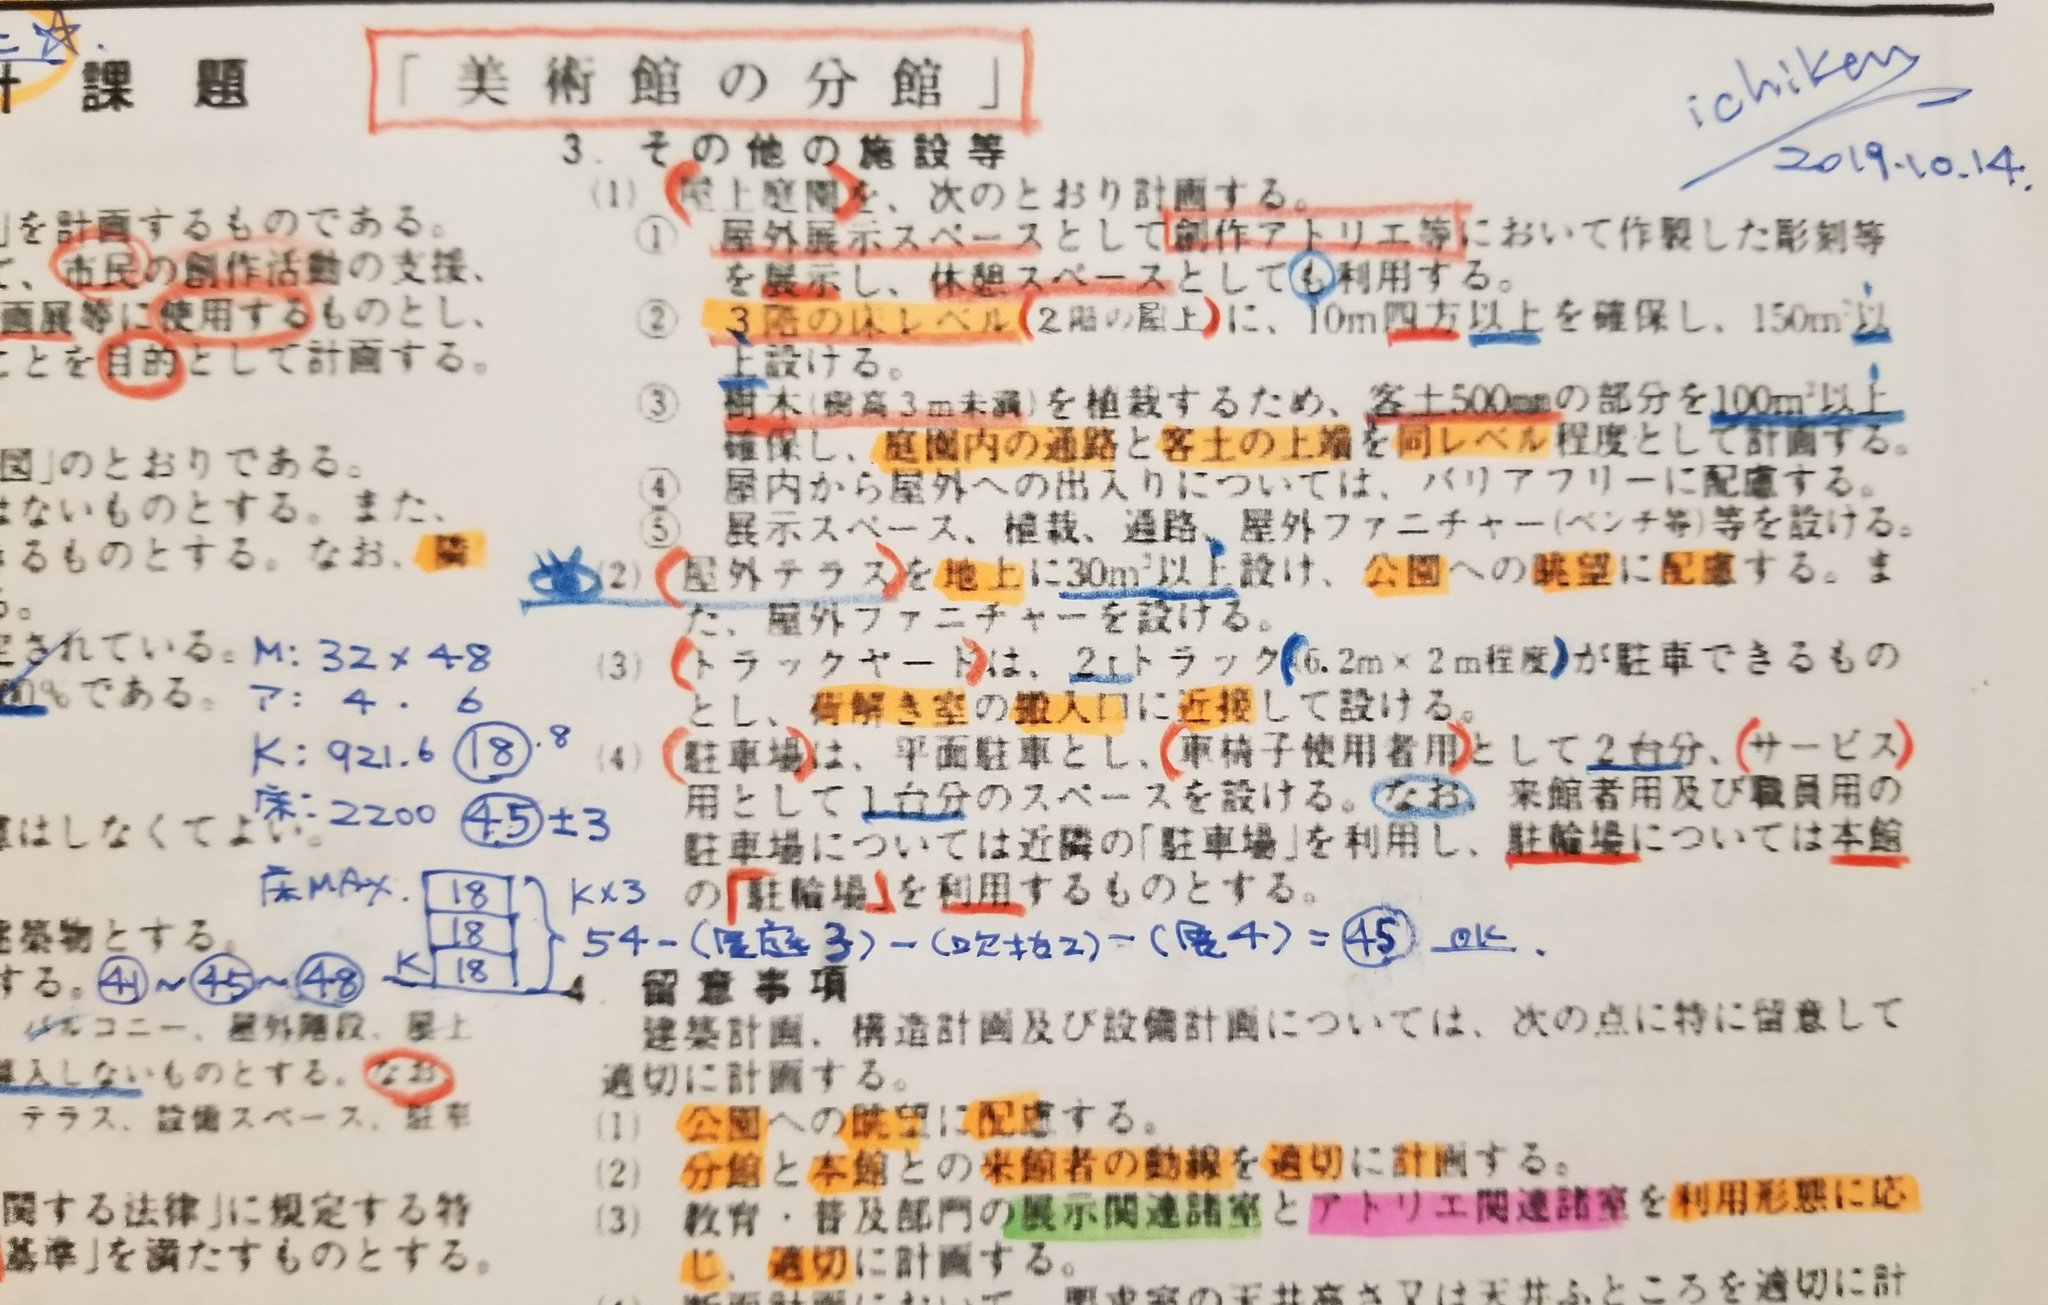 課題 「美術館の分館」
ichiken
2019.10.14.
」を計画するものである。
て、市民の創作活動の支援、
画展等に使用するものとし、
ことを目的として計画する。
図」のとおりである。
はないものとする。また、
きるものとする。なお、隣
る。
定されている。
%である。
M: 32×48
ア: 4. 6
K: 921.6 18.8
床: 2200 45±3
はしなくてよい。
床MAX. 18 K×3
18
K 18
54-(屋庭3)-(吹抜2)-(屋4)=45 OK.
建築物とする。
する。 41~45~48
バルコニー、屋外階段、屋上
算入しないものとする。なお
テラス、設備スペース、駐車
関する法律」に規定する特
基準」を満たすものとする。
3. その他の施設等
(1) 屋上庭園を、次のとおり計画する。
① 屋外展示スペースとして創作アトリエ等において作製した彫刻等
を展示し、休憩スペースとしても利用する。
② 3階の床レベル(2階の屋上)に、10m四方以上を確保し、150m²以
上設ける。
③ 樹木(樹高3m未満)を植栽するため、客土500mmの部分を100m²以上
確保し、庭園内の通路と客土の上端を同レベル程度として計画する。
④ 屋内から屋外への出入りについては、バリアフリーに配慮する。
⑤ 展示スペース、植栽、通路、屋外ファニチャー(ベンチ等)等を設ける。
(2) 屋外テラスを地上に30m²以上設け、公園への眺望に配慮する。ま
た、屋外ファニチャーを設ける。
(3) トラックヤードは、2tトラック(6.2m×2m程度)が駐車できるもの
とし、荷解き室の搬入口に近接して設ける。
(4) 駐車場は、平面駐車とし、車椅子使用者用として2台分、サービス
用として1台分のスペースを設ける。なお、来館者用及び職員用の
駐車場については近隣の「駐車場」を利用し、駐輪場については本館
の「駐輪場」を利用するものとする。
4. 留意事項
建築計画、構造計画及び設備計画については、次の点に特に留意して
適切に計画する。
(1) 公園への眺望に配慮する。
(2) 分館と本館との来館者の動線を適切に計画する。
(3) 教育・普及部門の展示関連諸室とアトリエ関連諸室を利用形態に応
じ、適切に計画する。
(4) 断面計画において、要求室の天井高さ又は天井ふところを適切に計